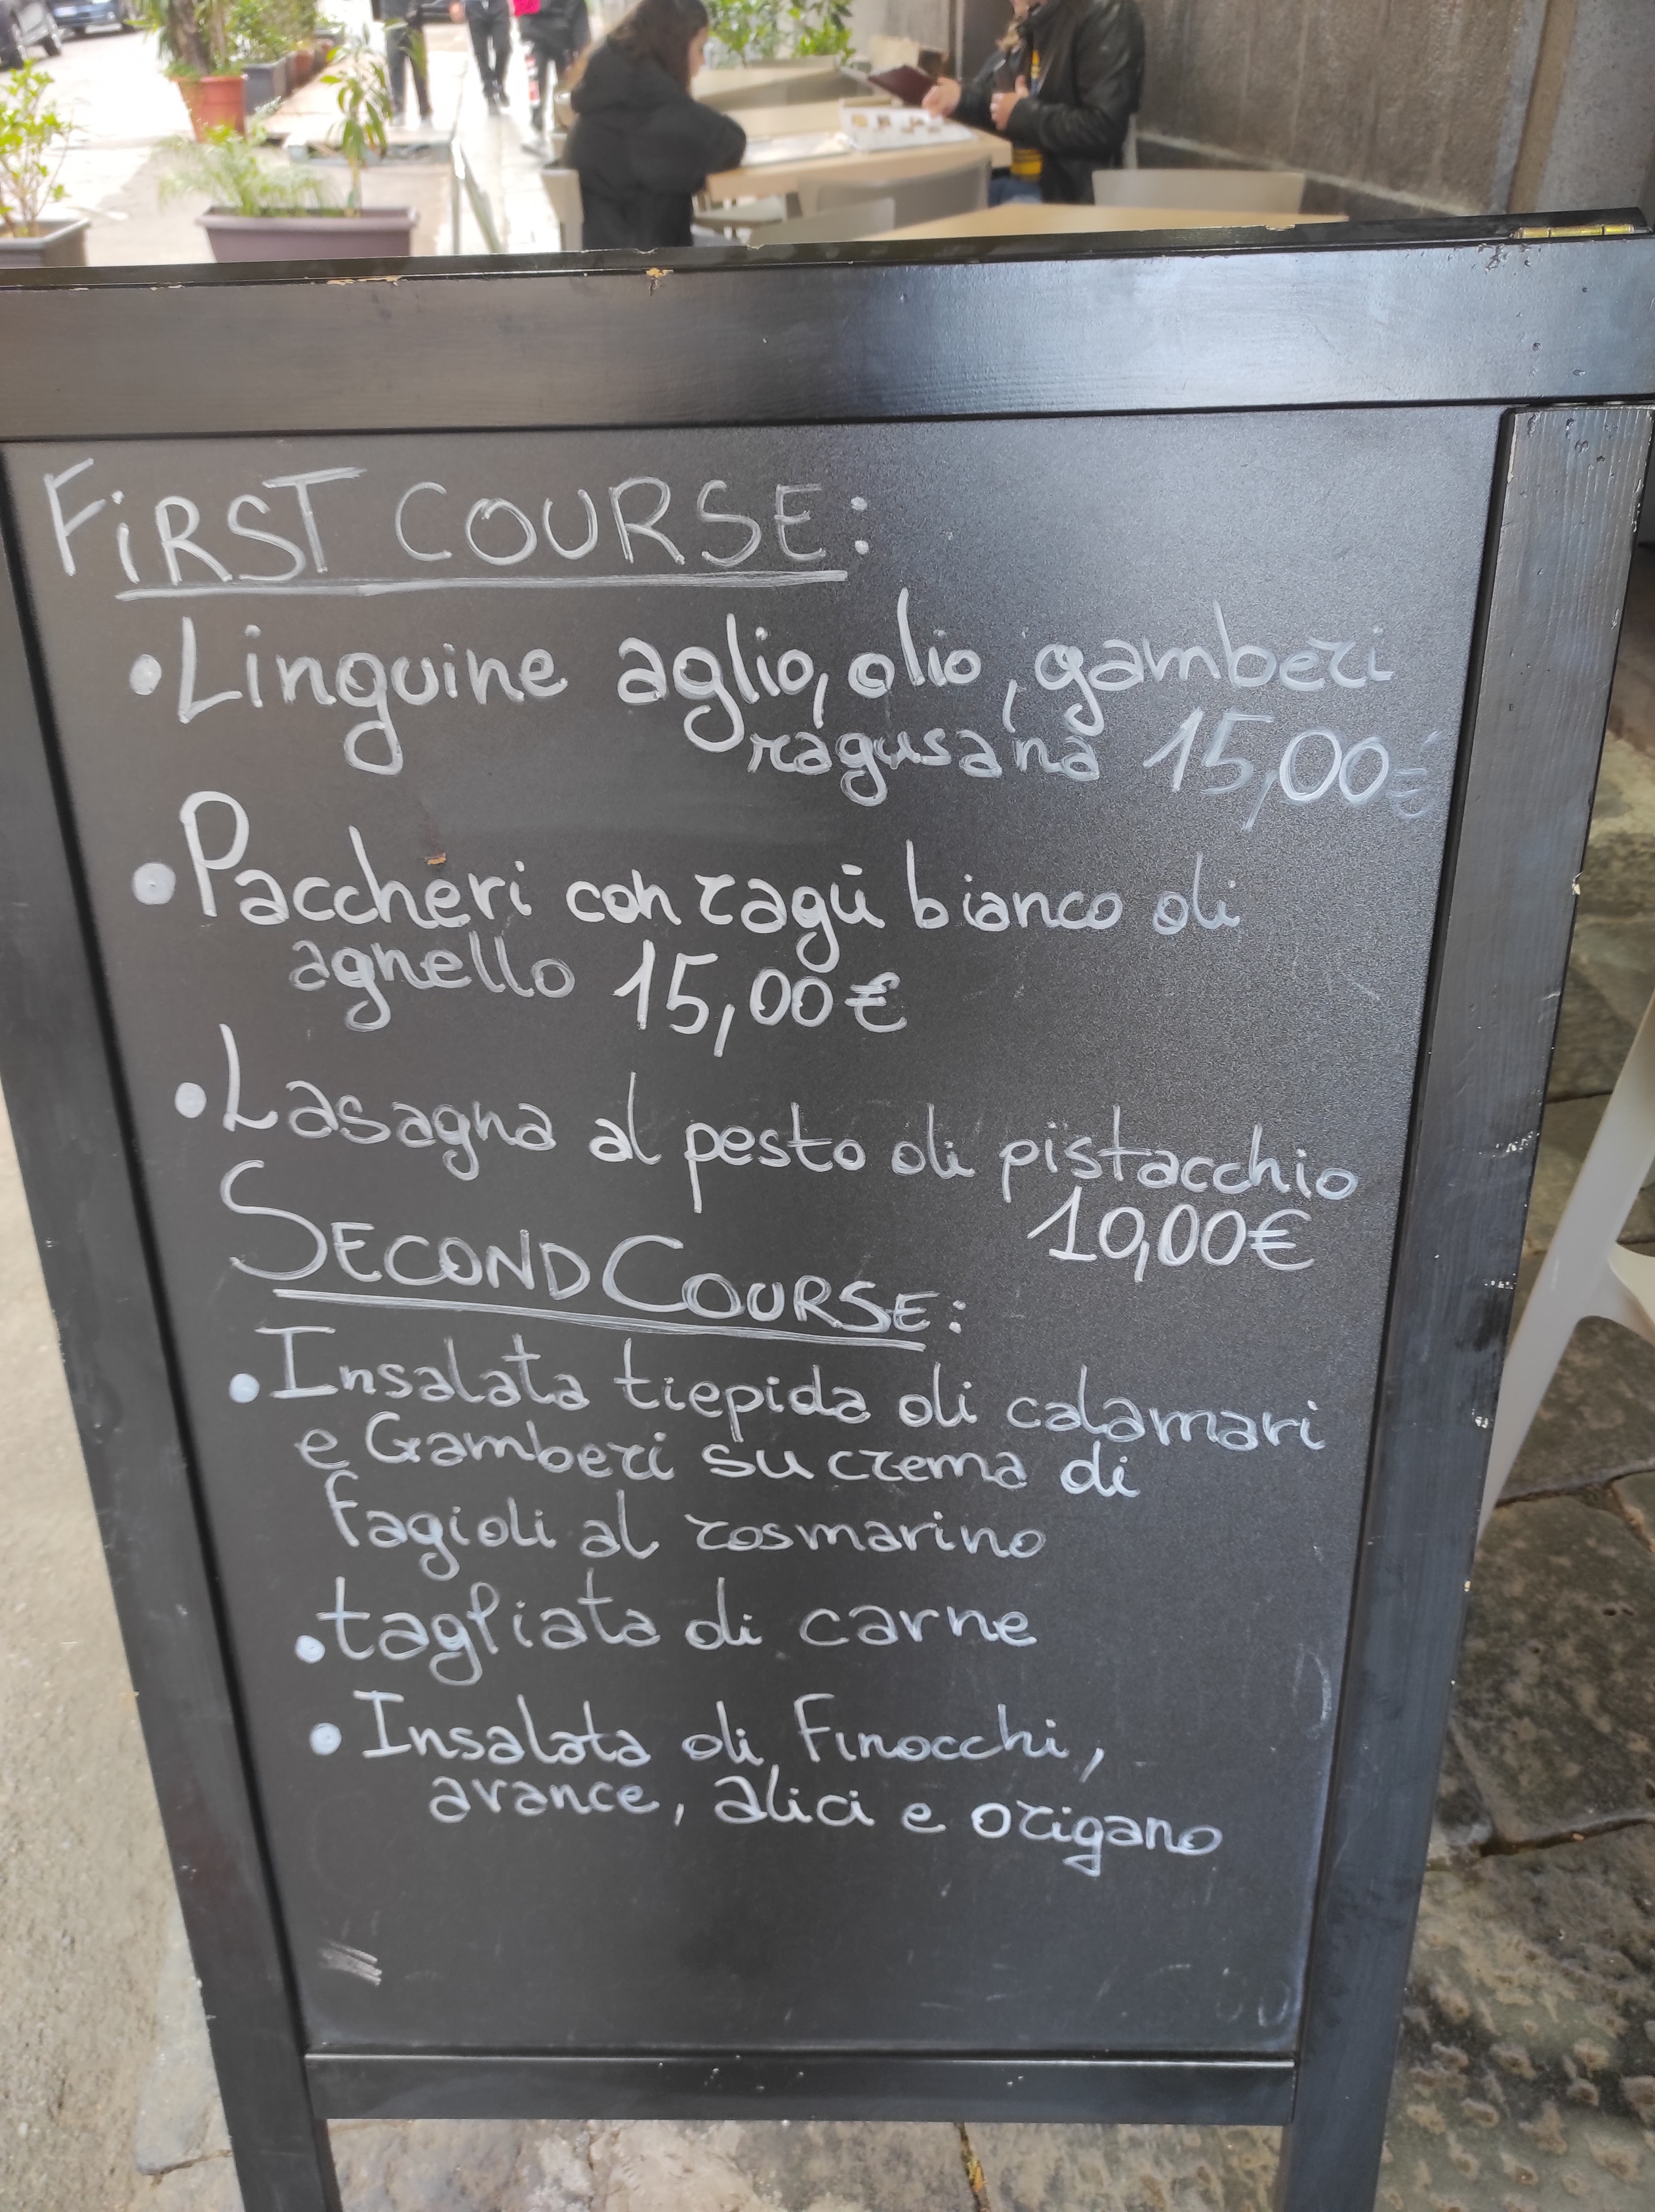 FiRST COURSE:
•Linguine aglio, olio, gamberi
ragusana 15,00€
•Paccheri con ragù bianco di
agnello 15,00€
•Lasagna al pesto di pistacchio
10,00€
SECOND COURSE:
•Insalata tiepida di calamari
e Gamberi su crema di
fagioli al rosmarino
•tagliata di carne
•Insalata di Finocchi,
arance, alici e origano